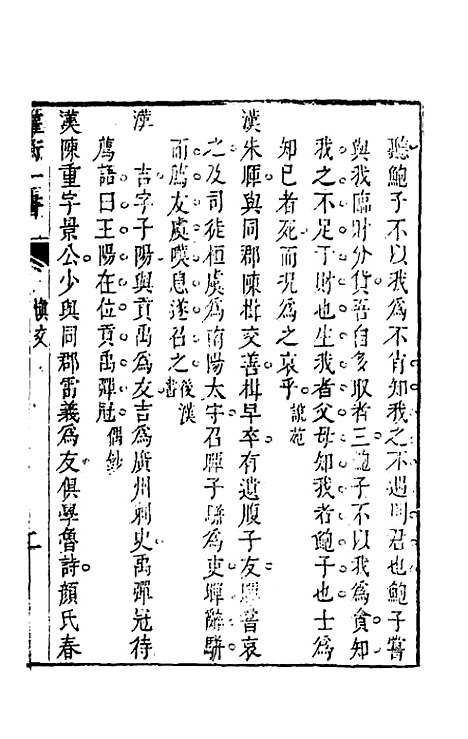 聽鮑子不以我爲不肖知我之不遇明君也鮑子嘗
與我臨財分貨吾自多取者三鮑子不以我爲貪知
我之不足于財也生我者父母知我者鮑子也士爲
知已者死而况爲之哀乎 說苑
漢朱暉與同郡陳揖交善揖早卒有遺腹子友暉嘗哀
之及司徒桓虞爲南陽太守召暉子駢爲吏暉辭駢
而薦友虞嘆息遂召之 後漢書
漢 吉字子陽與貢禹爲友吉爲廣州刺史禹彈冠待
薦語曰王陽在位貢禹彈冠 偶鈔
漢陳重字景公少與同郡雷義爲友俱學魯詩顏氏春
一 慎交 二